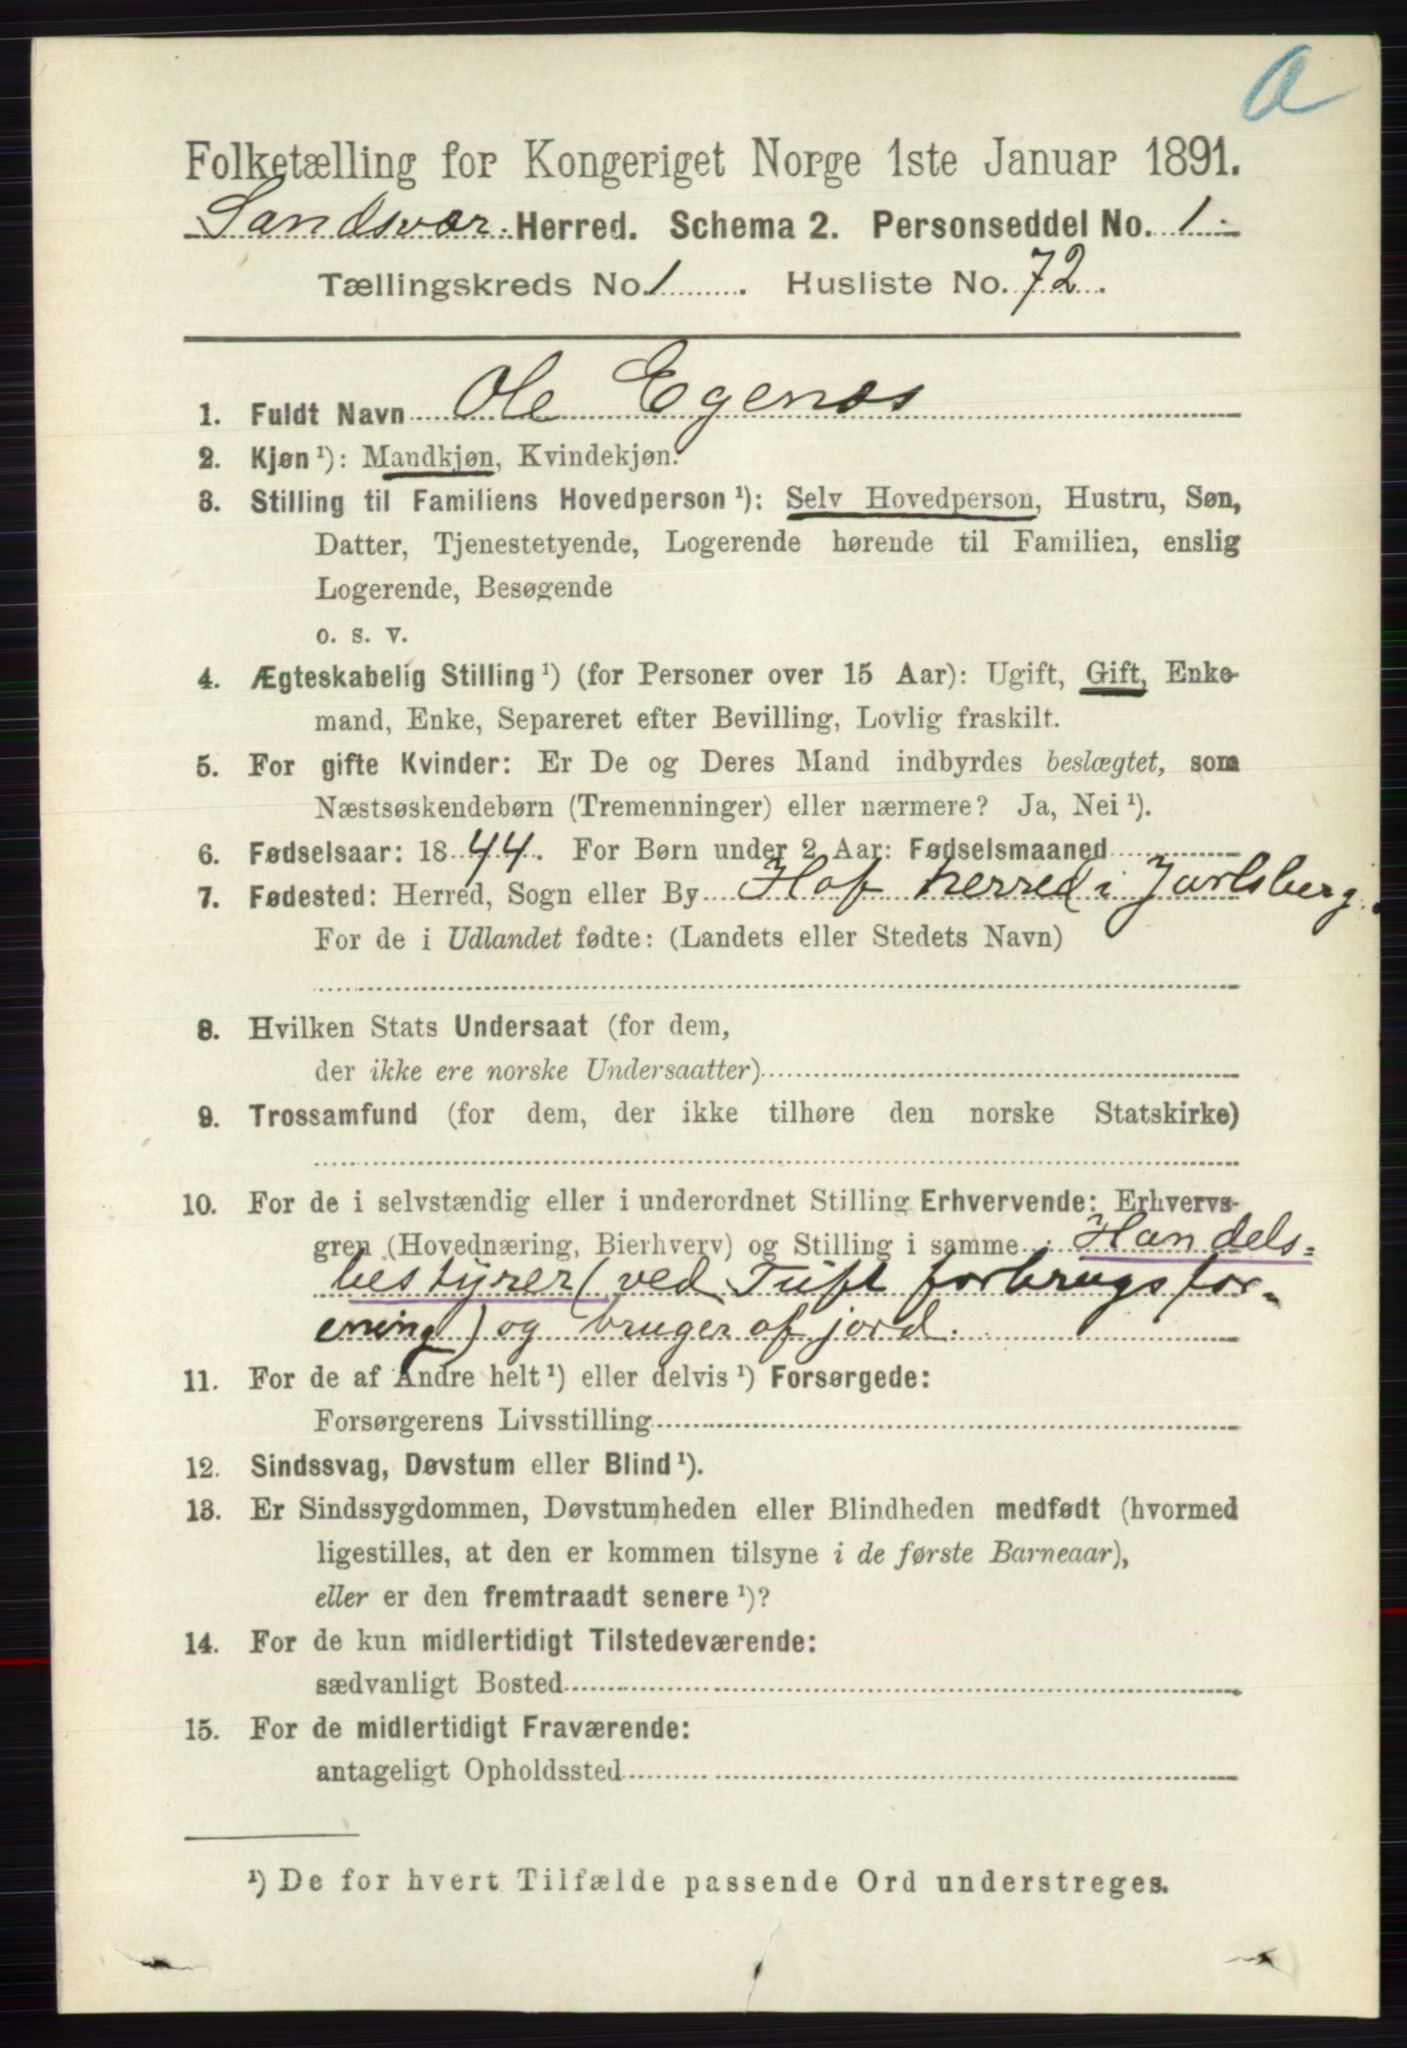 a
Folketælling for Kongeriget Norge 1ste Januar 1891.
Sandsvær Herred. Schema 2. Personseddel No. 1
Tællingskreds No. 1. Husliste No. 72.
1. Fuldt Navn Ole Egenæs
2. Kjøn ¹): Mandkjøn, Kvindekjøn.
3. Stilling til Familiens Hovedperson ¹): Selv Hovedperson, Hustru, Søn,
Datter, Tjenestetyende, Logerende hørende til Familien, enslig
Logerende, Besøgende
o. s. v.
4. Ægteskabelig Stilling ¹) (for Personer over 15 Aar): Ugift, Gift, Enke-
mand, Enke, Separeret efter Bevilling, Lovlig fraskilt.
5. For gifte Kvinder: Er De og Deres Mand indbyrdes beslægtet, som
Næstsøskendebørn (Tremenninger) eller nærmere? Ja, Nei ¹).
6. Fødselsaar: 1844. For Børn under 2 Aar: Fødselsmaaned
7. Fødested: Herred, Sogn eller By Hof herred i Jarlsberg.
For de i Udlandet fødte: (Landets eller Stedets Navn)
8. Hvilken Stats Undersaat (for dem,
der ikke ere norske Undersaatter)
9. Trossamfund (for dem, der ikke tilhøre den norske Statskirke)
10. For de i selvstændig eller i underordnet Stilling Erhvervende: Erhvervs-
gren (Hovednæring, Bierhverv) og Stilling i samme Handels-
bestyrer (ved Tuft forbrugsfor-
ening) og bruger af jord.
11. For de af Andre helt ¹) eller delvis ¹) Forsørgede:
Forsørgerens Livsstilling
12. Sindssvag, Døvstum eller Blind ¹).
13. Er Sindssygdommen, Døvstumheden eller Blindheden medfødt (hvormed
ligestilles, at den er kommen tilsyne i de første Barneaar),
eller er den fremtraadt senere ¹)?
14. For de kun midlertidigt Tilstedeværende:
sædvanligt Bosted
15. For de midlertidigt Fraværende:
antageligt Opholdssted
¹) De for hvert Tilfælde passende Ord understreges.